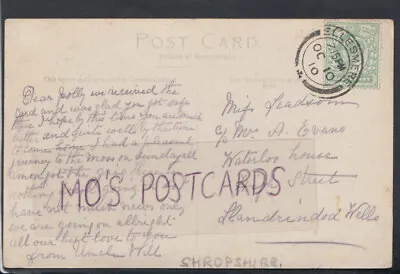 POST CARD
ELLESMERE
OC 10
10
Dear Polly we received the
card and was glad you got safe
there I hope by this time you are much
better and quite well by the time
come home I had a pleasant
journey to the Moss on Sunday all
amongst the
nothing
have not much news only
we are going on allright
all our best love to you
from Uncle Will
Miss Leadsom
c/o Mrs A. Evans
Waterloo house
Street
Llandrindod Wells
SHROPSHIRE.
MOS POSTCARDS